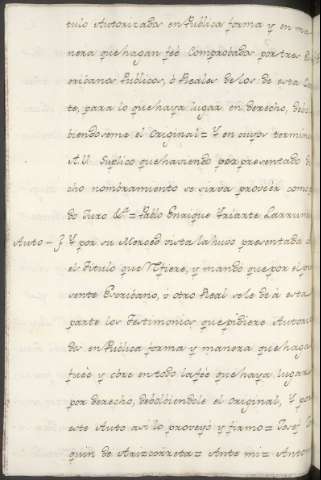 tulo Autorizada en Pública forma y en ma
nera que hagan feé Comprobada por tres
cribanos Públicos, ó Reales de los de esta
te, para lo que haya lugar en derecho,
biendoseme el Original = Y en cuios termino
A.V. Suplico que haviendo por presentado
cho nombramiento se sirva proveér como
do Juro &ª = Pablo Enrique Yriarte Larrum
Auto - Y por su Merced vista la huvo presentada
el Titulo que refiere, y mandó que por el
sente Escribano, ú otro Real se le dé á esta
parte los Testimonios que pidiere Autoriza
dos en Pública forma y manera que haga
feée y obre en todo la feé que haya lugar
por derecho, debolbiendole el Original, Y por
este Auto asi lo proveyó y firmó = Josef
quin de Arizcorreta = Ante mi = Anto